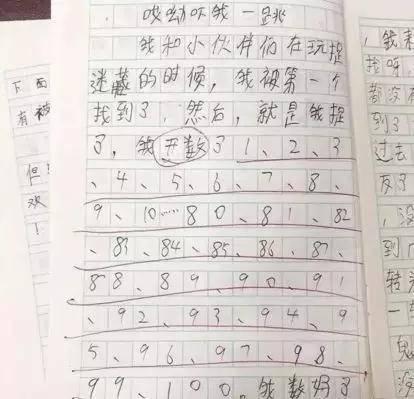 下面
有被
但
欢
！
哎呦吓我一跳
我和小伙伴们在玩捉
迷藏的时候，我被第一个
找到了，然后，就是我捉
了，我开数了1、2、3
、4、5、6、7、8、
9、10……80、81、82
、83、84、85、86、87、
88、89、90、91
、92、93、94、9
5、96、97、98、
99、100。我数好了
，我来
找呀
都没
到了
过去
反了
，没
到
转
一
鬼
没